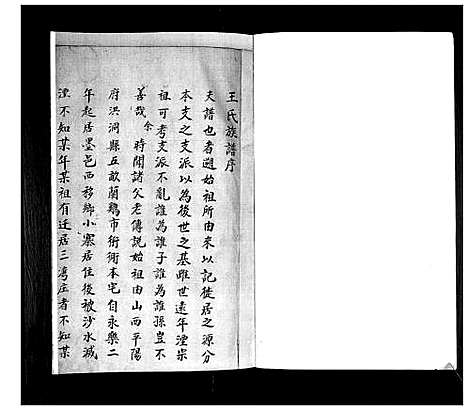 王氏族譜序
夫譜也者遡始祖所由來以記徙居之源分
本支之支派以為後世之基雖世遠年湮宗
祖可考支派不亂誰為誰子誰為誰孫豈不
善哉余時聞諸父老傳說始祖由山西平陽
府洪洞縣五畝蘭鷄市衚衕本宅自永樂二
年起居墨邑西移鄉小寨居住後被沙水滅
湮不知某年某祖有迁居三灣庄者不知某